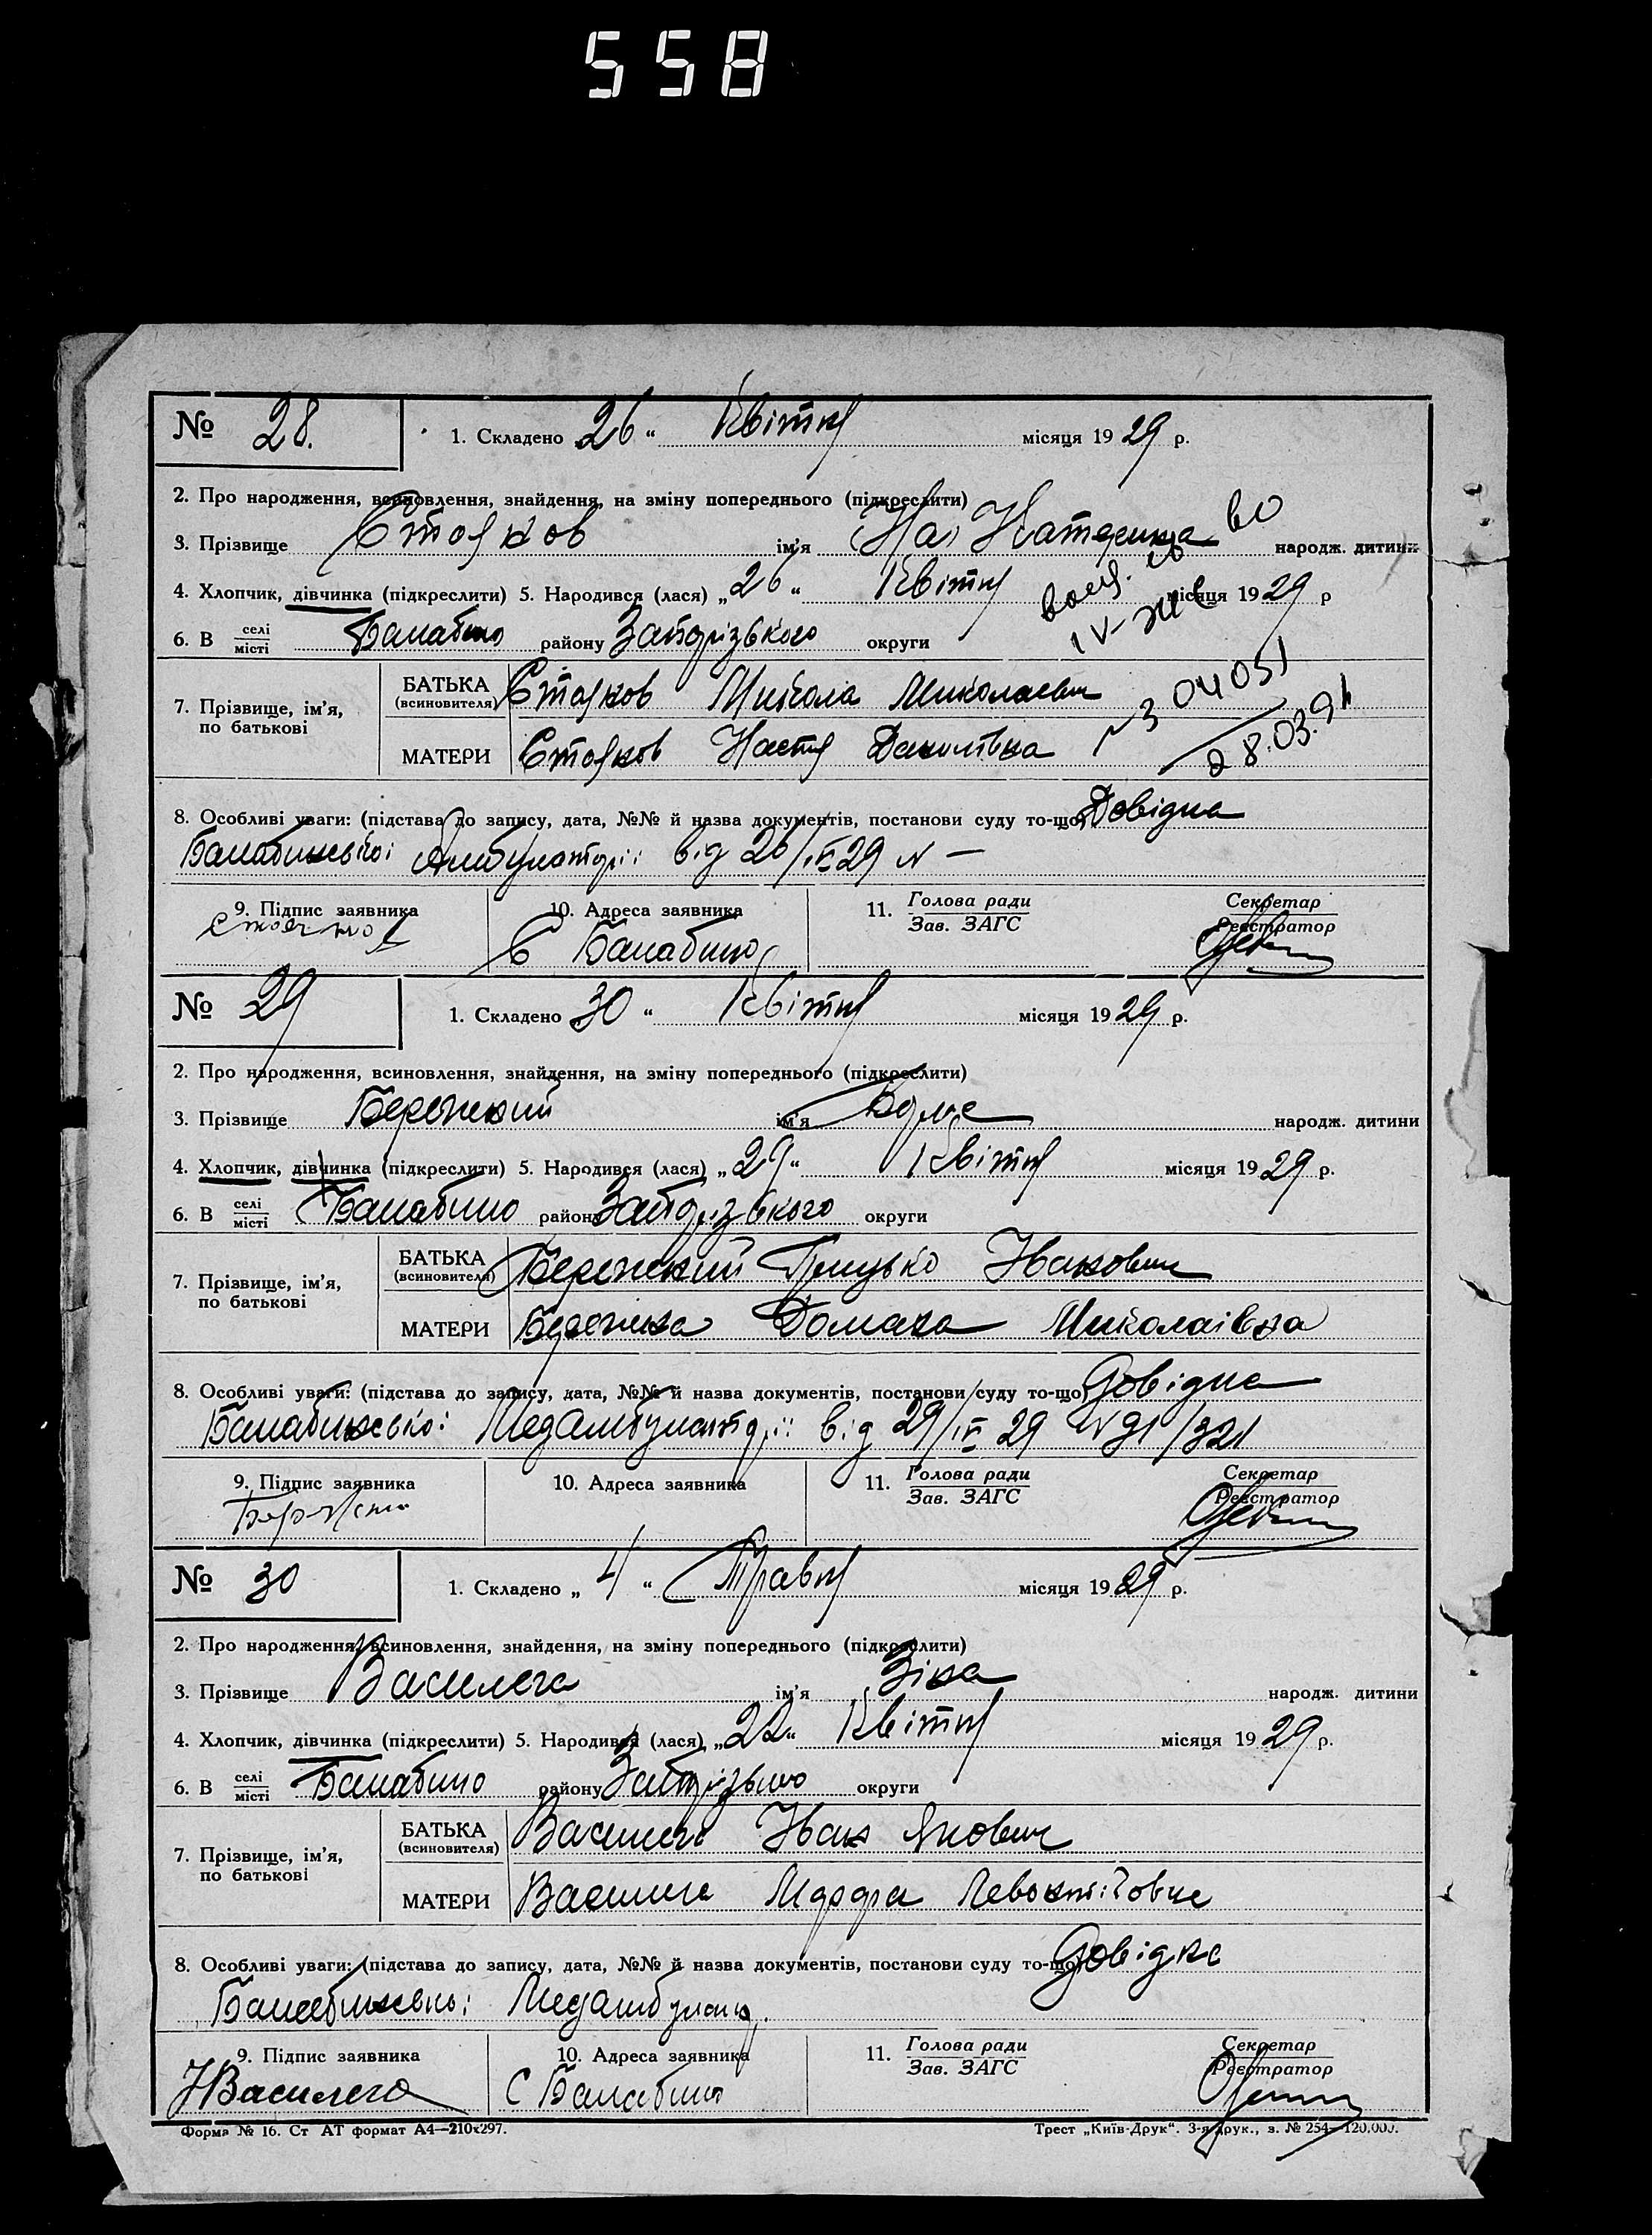 558
№ 28. 1. Складено 26 “ Квітня місяця 1929 р.
2. Про народження, всиновлення, знайдення, на зміну попереднього (підкреслити)
3. Прізвище Стояков ім’я Катерина народж. дитини
4. Хлопчик, дівчинка (підкреслити) 5. Народився (лася) „26“ Квітня місяця 1929 р
6. В селі місті Балабино району Запорізького округи
7. Прізвище, ім’я, по батькові
БАТЬКА (всиновителя) Стояков Микола Миколаевич
МАТЕРИ Стояков Настя Данилівна
№ 304051
28.03.91
8. Особливі уваги: (підстава до запису, дата, №№ й назва документів, постанови суду то-що) Довідка
Балабинської Амбулаторії від 26/IV 29 N —
9. Підпис заявника 10. Адреса заявника 11. Голова ради Зав. ЗАГС Секретар Реєстратор
С Балабино
№ 29 1. Складено „30“ Квітня місяця 1929 р.
2. Про народження, всиновлення, знайдення, на зміну попереднього (підкреслити)
3. Прізвище Бережний ім’я народж. дитини
4. Хлопчик, дівчинка (підкреслити) 5. Народився (лася) „29“ Квітня місяця 1929 р.
6. В селі місті Балабино району Запорізького округи
7. Прізвище, ім’я, по батькові
БАТЬКА (всиновителя) Бережний Грицько Іванович
МАТЕРИ Бережна Домаха Миколаівна
8. Особливі уваги: (підстава до запису, дата, №№ й назва документів, постанови суду то-що) Довідка
Балабинської Медамбулаторії від 29/IV 29 N 91/321
9. Підпис заявника 10. Адреса заявника 11. Голова ради Зав. ЗАГС Секретар Реєстратор
№ 30 1. Складено „ 4 “ Травня місяця 1929 р.
2. Про народження, всиновлення, знайдення, на зміну попереднього (підкреслити)
3. Прізвище Василега ім’я Зіна народж. дитини
4. Хлопчик, дівчинка (підкреслити) 5. Народився (лася) „22“ Квітня місяця 1929 р.
6. В селі місті Балабино району округи
7. Прізвище, ім’я, по батькові
БАТЬКА (всиновителя) Василега Іван Якович
МАТЕРИ Василега
8. Особливі уваги: (підстава до запису, дата, №№ й назва документів, постанови суду то-що) Довідка
Балабинської Медамбулатор.
9. Підпис заявника 10. Адреса заявника 11. Голова ради Зав. ЗАГС Секретар Реєстратор
Василега С Балабино
Форма № 16. Ст АТ формат А4—210х297. Трест „Київ-Друк“. 3-я друк., з. № 254—120.000.